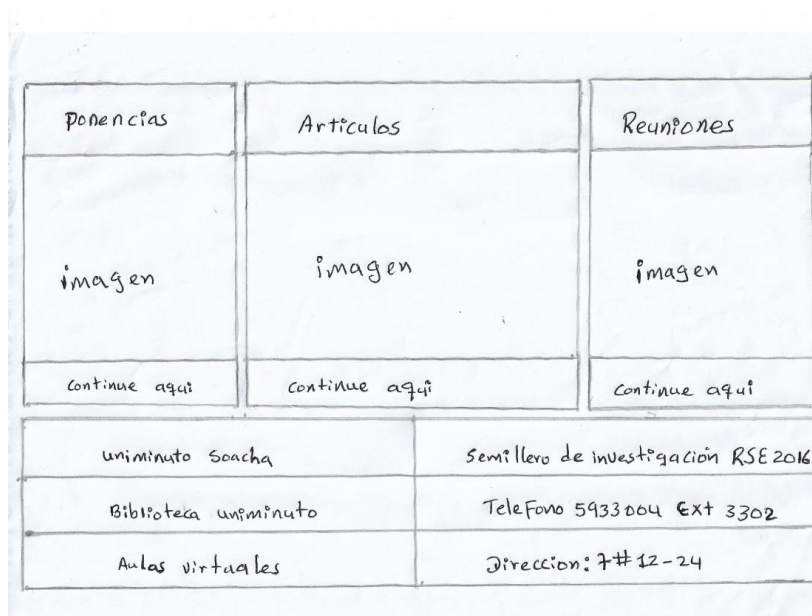 Ponencias
Articulos
Reuniones
imagen
imagen
imagen
Continue aqui
continue aqui
continue aqui
uniminuto Soacha
Semillero de investigación RSE 2016
Biblioteca uniminuto
Telefono 5933004 Ext 3302
Aulas virtuales
Direccion: 7# 12-24